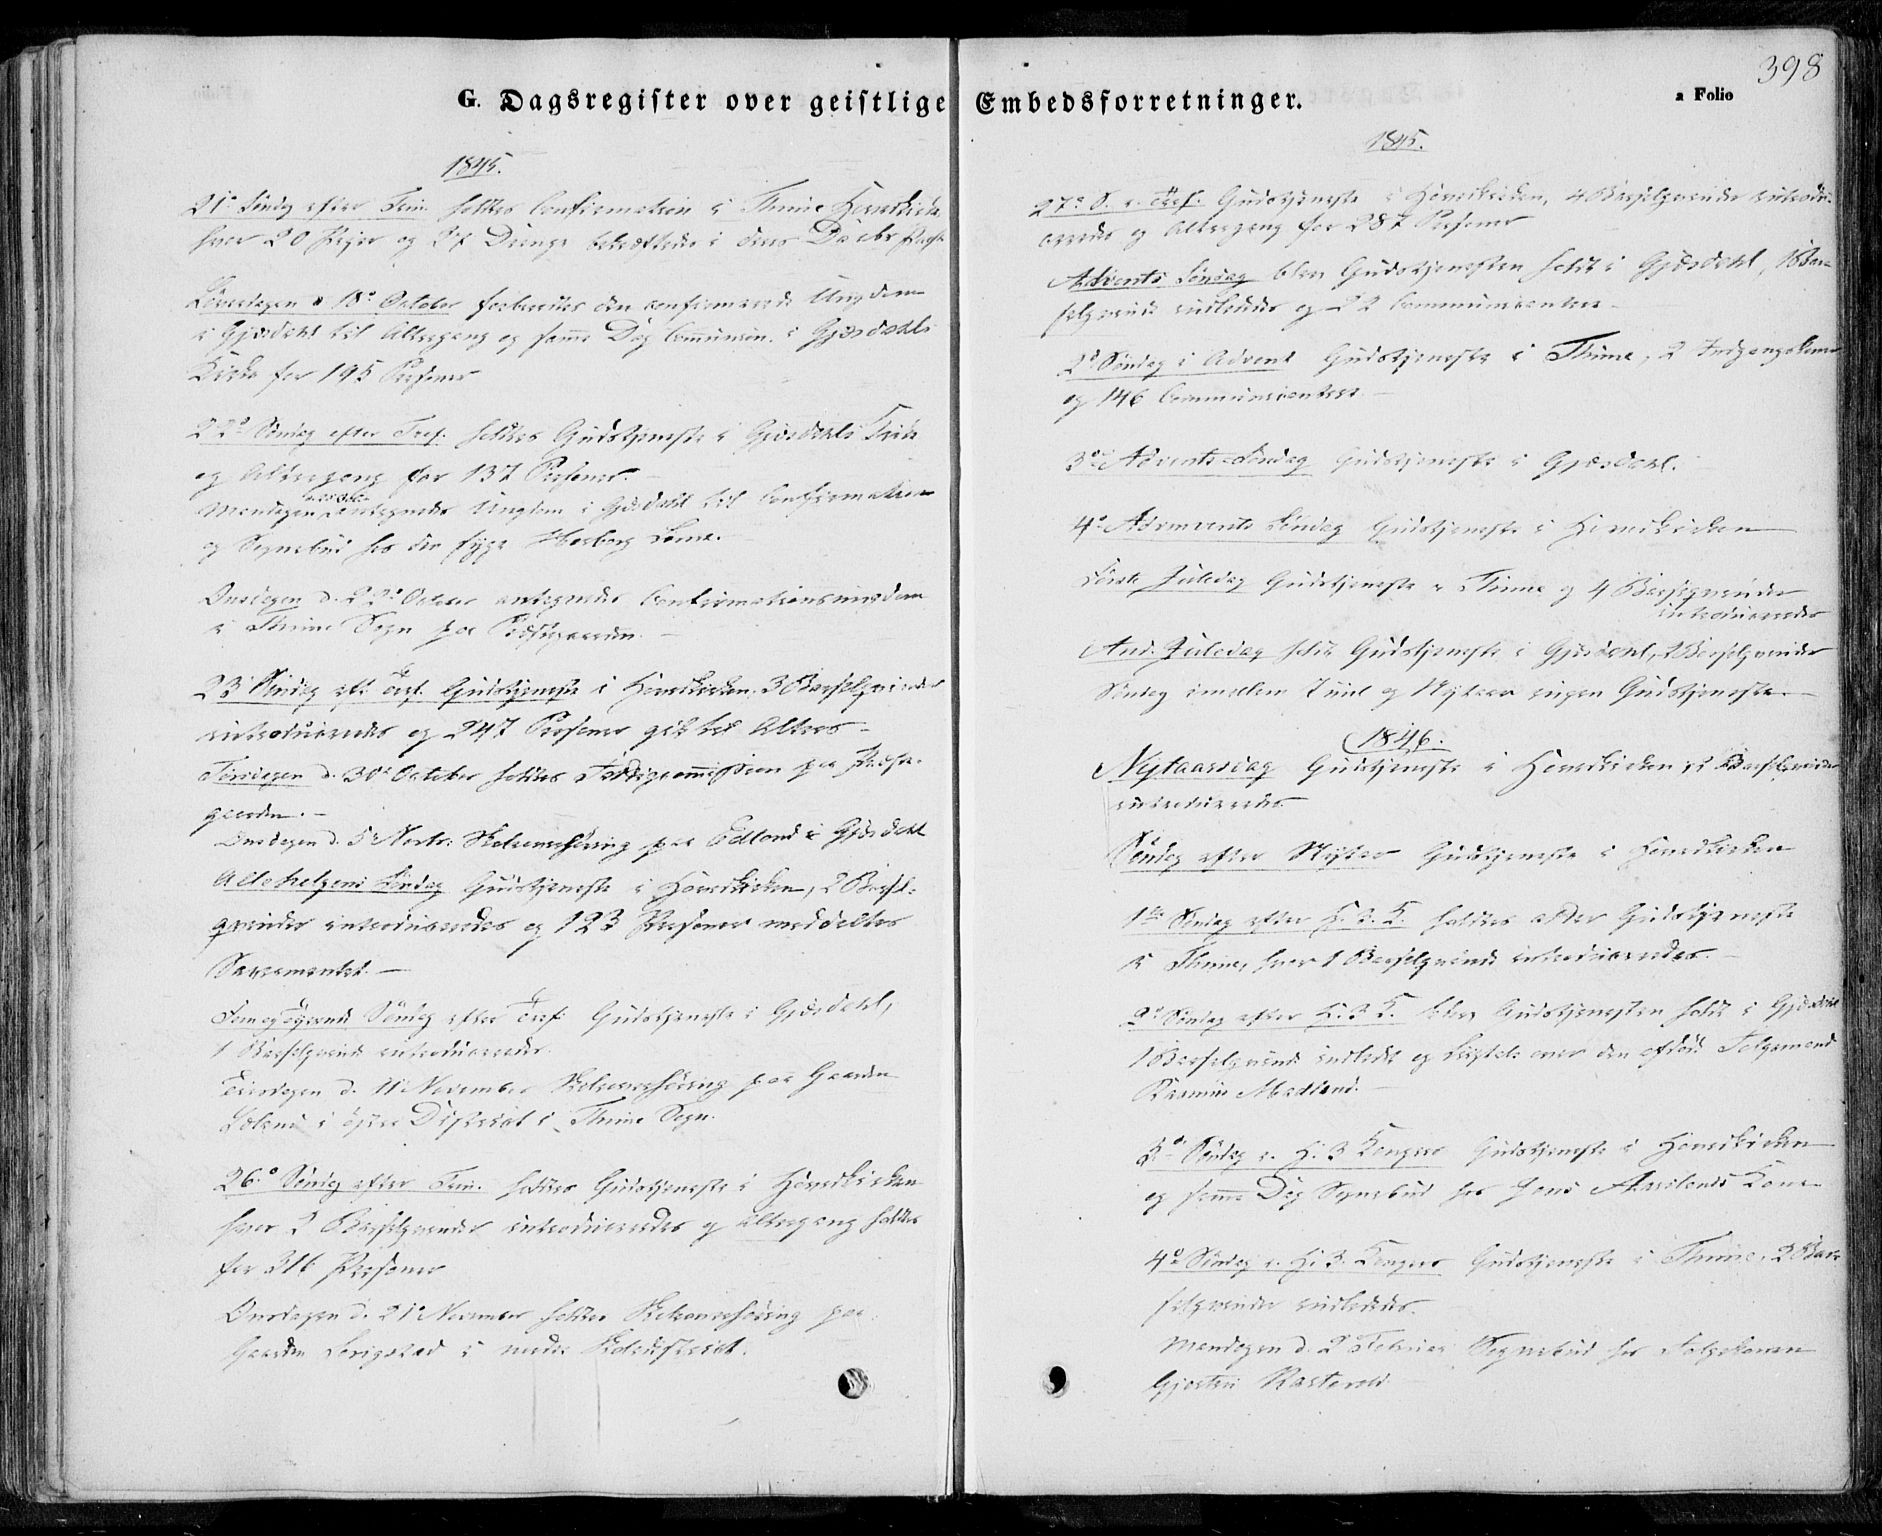 398
G. Dagsregister over geistlige Embedsforretninger.
a Folio
1845.
21de Søndag efter Trin. holdtes Confirmation i Thime Hovedkirke
hvor 20 Piger og 27 Drenge bekræftedes i deres Daabs Pagt
Løverdagen 18de October forberedtes den confirmerede Ungdom
i Gjæsdahl til Altergang og samme Dag Communion i Gjæsdahls
Kirke for 195 Personer
22de Søndag efter Tref. holdtes Gudstjeneste i Gjæsdahls Kirke
og Altergang for 137 Personer. —
Mandagen antegnedes Ungdom i Gjæsdahl til Confirmation
og Sognebud hos den syge
Onsdagen d. 22de October antegnedes Confirmationsungdom
i Thime Sogn paa —
23 Søndag eft. Tref. Gudstjeneste i Hovedkirken. 3 Barselqvinder
introduceredes og 247 Personer gik til Alters —
Tirsdagen d. October holdtes Fattigcommission paa Præste-
gaarden. —
Onsdagen d. 5te Novbr. Skoleoverhøring paa Edland i Gjæsdahl
Allehelgens Søndag Gudstjeneste i Hovedkirken, 2 Barsel-
qvinder introduceredes og 123 Personer meddeltes
Sacramentet. —
Fem og tyvende Søndag efter Tref. Gudstjeneste i Gjæsdahl,
1 Barselqvinde introduceredes.
Tirsdagen d. 11te November Skoleoverhøring paa Gaarden
i østre District i Thime Sogn.
26de Søndag efter Trin. holdtes Gudstjeneste i Hovedkirken
hvor 2 Barselqvinder introduceredes og Altergang holdtes
for 316 Personer
Onsdagen d. 21de November holdtes Skoleoverhøring paa
Gaarden i nedre Skoledistrict.
1845.
27de S. e. Tref. Gudstjeneste i Hovedkirken, 4 Barselqvinder introdu-
ceredes og Altergang for 287 Personer
Advents Søndag blev Gudstjenesten holdt i Gjæsdahl, 1 Bar-
selqvinde indlededes og 22 Communicanter —
2de Søndag i Advent Gudstjeneste i Thime, 2 Indgangskoner
og 146 Communicanter —
3de Advents-Søndag Gudstjeneste i Gjæsdahl.
4de Advents Søndag Gudstjeneste i Hovedkirken
Første Juledag Gudstjeneste i Thime og 4 Barselqvinder
introduceredes
And. Juledag holdt Gudstjeneste i Gjæsdahl, 2 Barselqvinder
Søndag imellem Juul og Nytaar ingen Gudstjeneste. —
1846.
Nytaarsdag Gudstjeneste i Hovedkirken, Barselqvinder
introduceredes
Søndag efter Nytaar Gudstjeneste i Hovedkirken
1ste Søndag efter H. 3. K. holdtes Gudstjeneste
i Thime, hvor 1 Barselqvinde introduceredes. —
2de Søndag efter H. 3 K. blev Gudstjenesten holdt i Gjæsdahl
1 Barselqvinde indledt og Liigtale over den afdøde Folgemand
Rasmus Madland. —
3de Søndag e. H. 3 Kongers Gudstjeneste i Hovedkirken
og samme Dag Sognebud hos Kone —
4de Søndag e. H. 3. Kongers Gudstjeneste i Thime, 2 Bar-
selqvinder indlededes.
Mandagen d. 2de Februar Sognebud hos Folgekonen